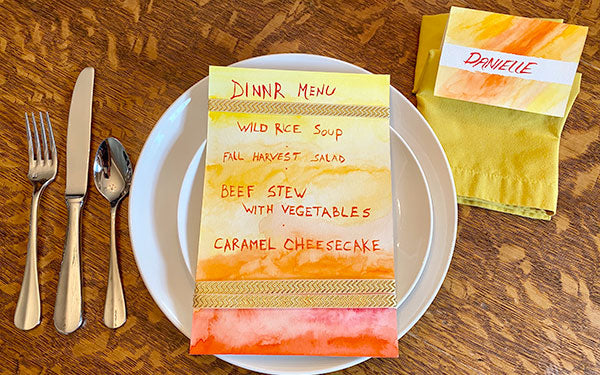 DINNR MENU
WILD RICE SOUP
FALL HARVEST SALAD
BEEF STEW
WITH VEGETABLES
CARAMEL CHEESECAKE
DANIELLE